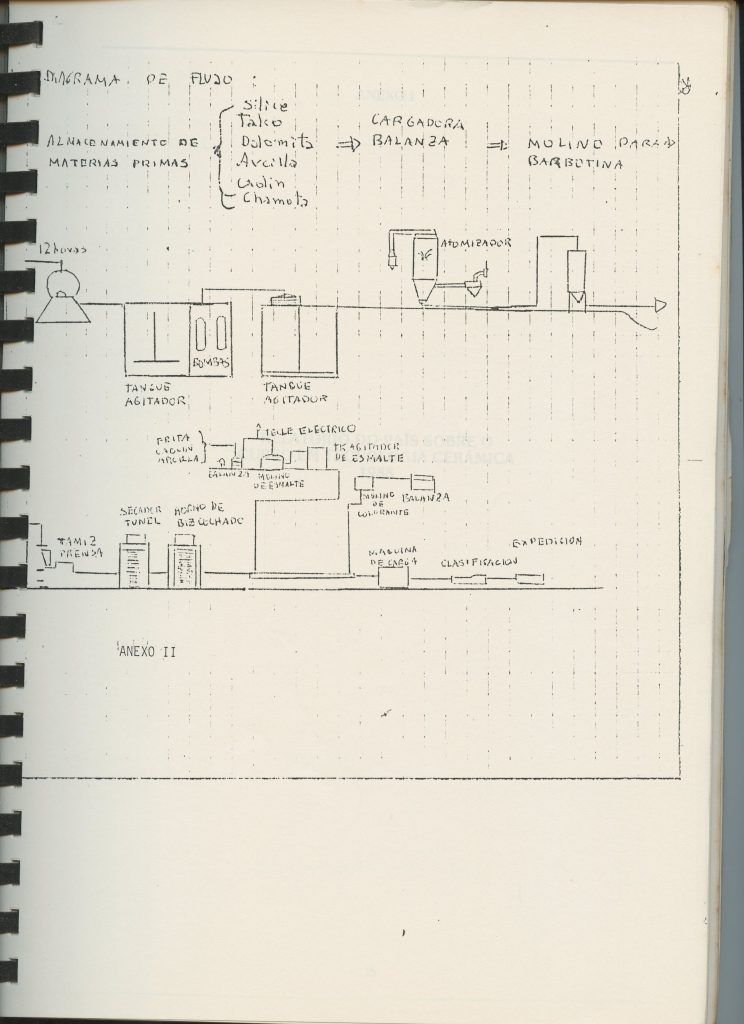 DIAGRAMA DE FLUJO :
ALMACENAMIENTO DE
MATERIAS PRIMAS
Silice
Talco
Dolomita
Arcilla
Caolin
Chamota
CARGADORA
BALANZA
MOLINO PARA
BARBOTINA
12 horas
ATOMIZADOR
BOMBAS
TANQUE
AGITADOR
TANQUE
AGITADOR
FRITA
CAOLIN
ARCILLA
TECLE ELECTRICO
BALANZA
MOLINO
DE ESMALTE
TK AGITADOR
DE ESMALTE
MOLINO
DE
COLORANTE
BALANZA
TAMIZ
PRENSA
SECADOR
TUNEL
HORNO DE
BIZCOCHADO
MAQUINA
DE CARGA
CLASIFICACION
EXPEDICION
ANEXO II